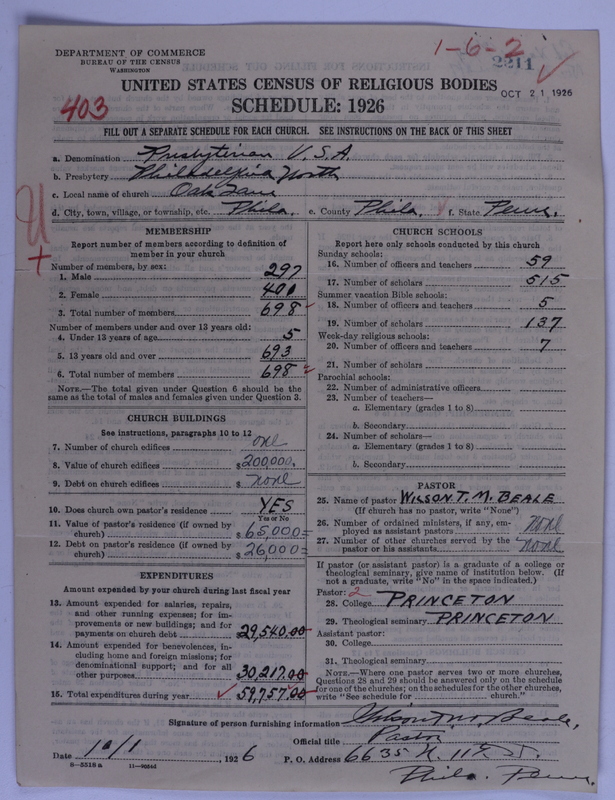 DEPARTMENT OF COMMERCE
BUREAU OF THE CENSUS
WASHINGTON
1-6-2
2211
UNITED STATES CENSUS OF RELIGIOUS BODIES
OCT 21 1926
403
SCHEDULE: 1926
FILL OUT A SEPARATE SCHEDULE FOR EACH CHURCH. SEE INSTRUCTIONS ON THE BACK OF THIS SHEET
a. Denomination Presbyterian U.S.A.
b. Presbytery Philadelphia North
c. Local name of church Oak Lane
d. City, town, village, or township, etc. Phila. e. County Phila. f. State Penn.
MEMBERSHIP
Report number of members according to definition of
member in your church
Number of members, by sex:
1. Male 297
2. Female 401
3. Total number of members 698
Number of members under and over 13 years old:
4. Under 13 years of age 5
5. 13 years old and over 693
6. Total number of members 698
NOTE.—The total given under Question 6 should be
same as the total of males and females given under Question 3.
CHURCH BUILDINGS
See instructions, paragraphs 10 to 12
7. Number of church edifices one
8. Value of church edifices $200,000.
9. Debt on church edifices $ none
10. Does church own pastor's residence YES
Yes or No
11. Value of pastor's residence (if owned by
church) $65,000=
12. Debt on pastor's residence (if owned by
church) $26,000=
EXPENDITURES
Amount expended by church during last fiscal year
13. Amount expended for salaries, repairs,
and other running expenses; for im-
provements or new buildings; and for
payments on church debt 29,540.00
14. Amount expended for benevolences, in-
cluding home and foreign missions; for
denominational support; and for all
other purposes 30,217.00
15. Total expenditures during year 59,757.00
CHURCH SCHOOLS
Report here only schools conducted by this church
Sunday schools:
16. Number of officers and teachers 59
17. Number of scholars 515
Summer vacation Bible schools:
18. Number of officers and teachers 5
19. Number of scholars 137
Week-day religious schools:
20. Number of officers and teachers 7
21. Number of scholars
Parochial schools:
22. Number of administrative officers
23. Number of teachers—
a. Elementary (grades 1 to 8)
b. Secondary
24. Number of scholars—
a. Elementary (grades 1 to 8)
b. Secondary
PASTOR
25. Name of pastor WILSON T. M. BEALE
(If church has no pastor, write "None")
26. Number of ordained ministers, if any, em-
ployed as assistant pastors none
27. Number of other churches served by the
pastor or his assistants none
If pastor (or assistant pastor) is a graduate of a college or
theological seminary, give name of institution below. (If
not a graduate, write "No" in the space indicated.)
Pastor: 2
28. College PRINCETON
29. Theological seminary PRINCETON
Assistant pastor:
30. College
31. Theological seminary
NOTE.—Where one pastor serves two or more churches,
Questions 28 and 29 should be answered only on the schedule
for one of the churches; on the schedules for the other churches,
write "See schedule for church."
Signature of person furnishing information Wilson T. M. Beale,
Official title Pastor
Date 10/1, 1926 P. O. Address 6635 N. 11th St.
8-5518 a
Phila. Penn.